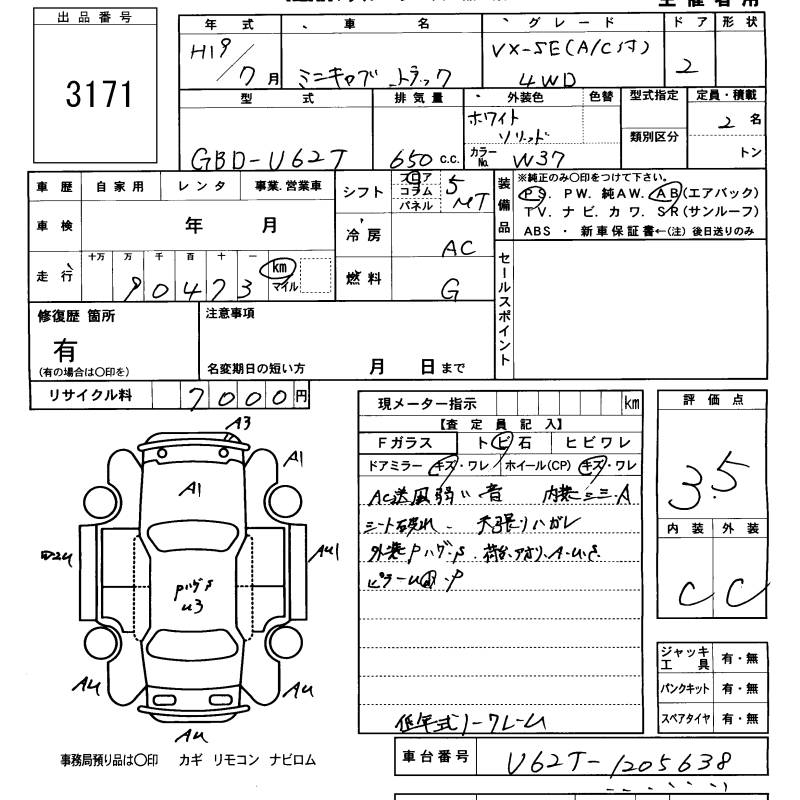 出品番号
3171
年式 車名 グレード ドア 形状
H19/7月 ミニキャブ トラック VX-SE(A/C付) 4WD 2
型式 排気量 外装色 色替 型式指定 定員・積載
GBD-U62T 650 c.c. ホワイト ソリッド 類別区分 2名
カラーNo. W37 トン
車歴 自家用 レンタ 事業.営業車
シフト フロア コラム パネル 5 MT
装備品 ※純正のみ〇印をつけて下さい。
PS. PW. 純AW. AB(エアバック)
TV. ナビ. カワ. SR(サンルーフ)
ABS ・ 新車保証書←(注) 後日送りのみ
車検 年 月
冷房 AC
走行 十万 万 千 百 十 一
90473 km マイル
燃料 G
セールスポイント
修復歴 箇所
有
(有の場合は〇印を)
注意事項
名変期日の短い方 月 日まで
リサイクル料 7000円
現メーター指示 km
【査定員記入】
Fガラス トビ石 ヒビワレ
ドアミラー キズ・ワレ ホイール(CP) キズ・ワレ
AC送風弱い 音 内装シミ.A
シート破れ. 天張りハガレ
外装PハゲS. 荷台.アオリ.A.U.S.
ピラーU P
低年式
評価点
3.5
内装 外装
C C
A3
A1
A1
AU1
PハゲS
U3
AU
AU
AU
ジャッキ工具 有・無
パンクキット 有・無
スペアタイヤ 有・無
事務局預り品は〇印 カギ リモコン ナビロム
車台番号 U62T-1205638